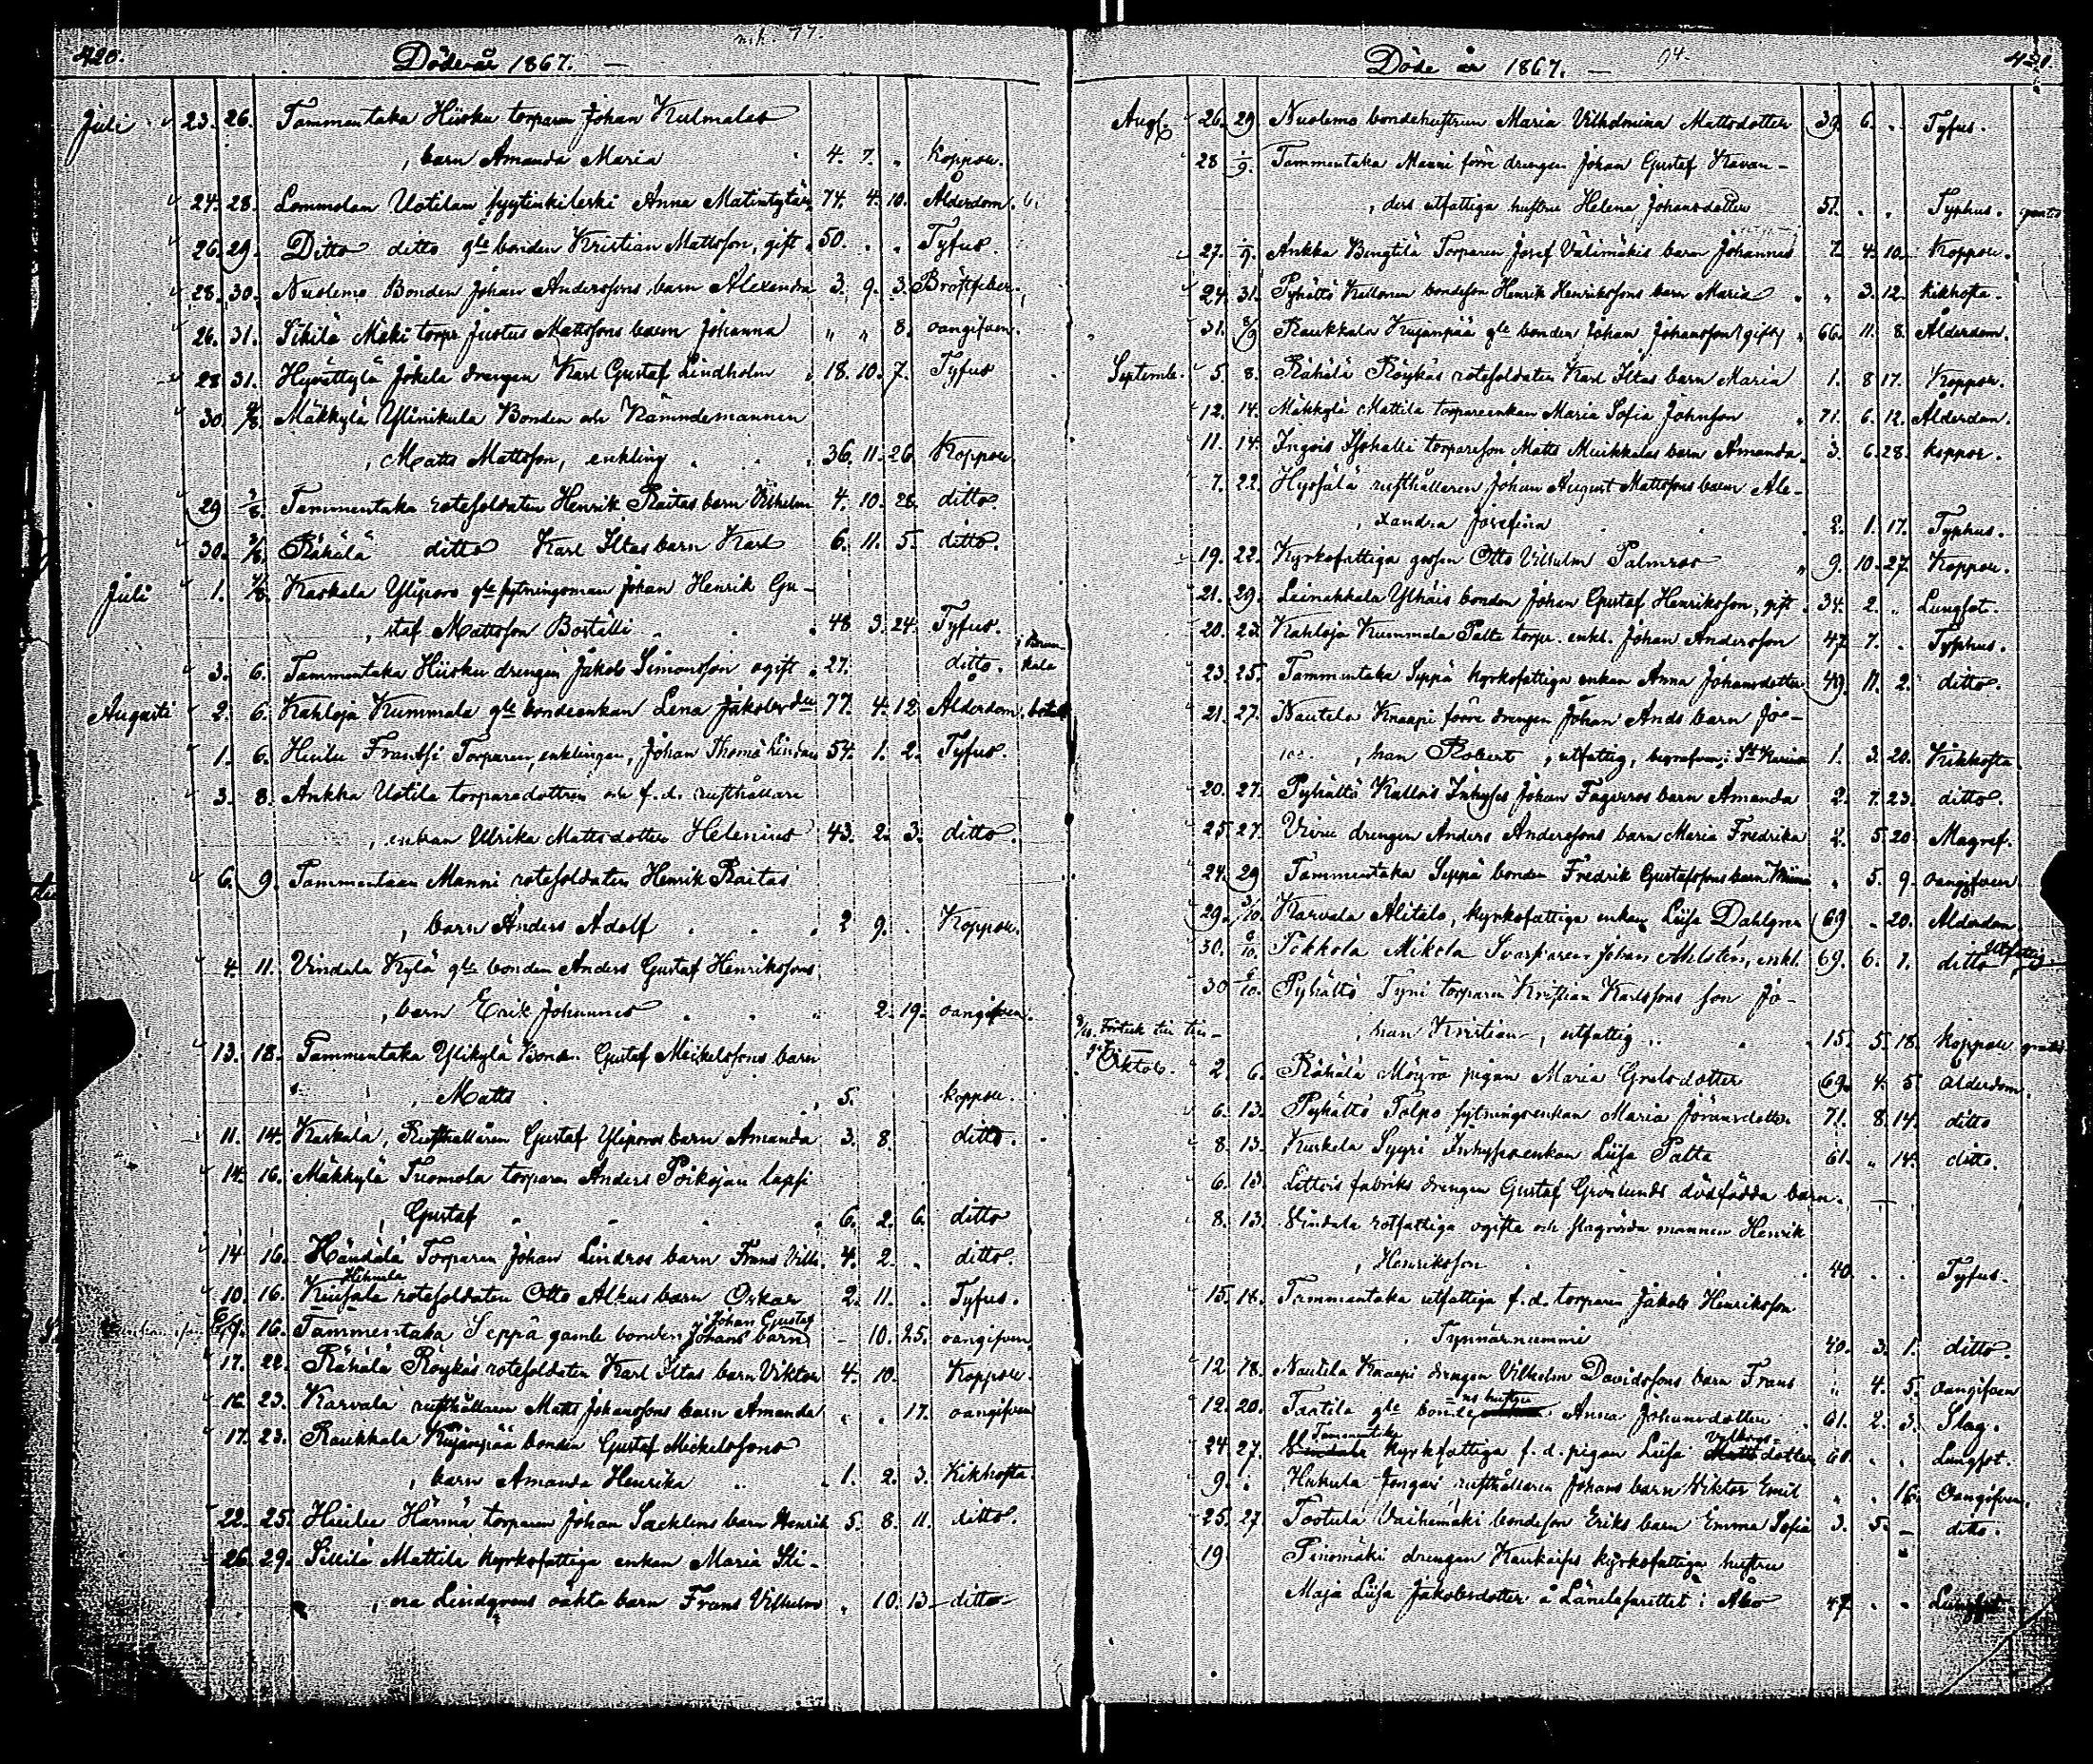 420. Döde år 1867. — 77.
Juli 23. 26. Tammentaka Hiisku torparen Johan Kulmalas
, barn Amanda Maria 4. 7. „ Koppor.
24. 28. Lommolan Uotilan syytinkileski Anna Matintytär 74. 4. 10. Ålderdom.
26. 29. Ditto ditto gle bonden Kristian Mattsson, gift 50. „ „ Tyfus.
28. 30. Nuolemo Bonden Johan Anderssons barn Alexandra 3. 9. 3. Bröstfeber.
26. 31. Sikilä Mäki torpr Justus Mattssons barn Johanna „ „ 8. oangifven.
28 31. Hyvättylä Jokela drengen Karl Gustaf Lindholm 18. 10. 7. Tyfus
30 4/8. Mäkkylä Ylinikula Bonden och Nämndemannen
, Matts Mattsson, enkling 36. 11. 26. Koppor.
29 /8. Tammentaka rotesoldaten Henrik Raitas barn Vilhelm 4. 10. 28. ditto.
30. /8. Rähälä ditto Karl Iltas barn Karl 6. 11. 5. ditto.
Juli 1. /8. Kaskala Yliporo gle sytningsman Johan Henrik Gu-
, staf Mattsson Boställi 48 3. 24. Tyfus.
3. 6. Tammentaka Hiisku drengen Jakob Simonsson ogift 27. ditto.
Augusti 2. 6. Kahloja Kummala gle bondeenkan Lena Jakobsdtr 77. 4. 12. Ålderdom.
1. 6. Hiilu Frantsi Torparen, enklingen, Johan Thomé Lindau 54. 1. 2. Tyfus.
3. 8. Ankka Uotila torparedottren och f.d. rusthållare
, enkan Ulrika Mattsdotter Helenius 43. 2. 3. ditto.
6. 9. Tammentaan Manni rotesoldaten Henrik Raitas
, barn Anders Adolf 2 9. . Koppor.
4. 11. Vindala Kylä gle bonden Anders Gustaf Henrikssons
, barn Erik Johannes 2. 19. oangifven.
13. 18. Tammentaka Ylikylä Bond. Gustaf Mickelssons barn
, Matts 5. koppor.
11. 14. Kaskala, Rusthållaren Gustaf Yliporos barn Amanda 3. 8. ditto.
14. 16. Mäkkylä Tuomola torparen Anders Poikojan lapsi
, Gustaf 6. 2. 6. ditto
14 16. Händälä Torparen Johan Lindros barn Frans Vilh. 4. 2. „ ditto.
10. 16. rotesoldaten Otto Alkus barn Oskar 2. 11. . Tyfus.
Johan Gustaf
16. Tammentaka Seppä gamle bonden Johans barn – 10. 25. oangifven
17. 22. Rähälä Röykäs rotesoldaten Karl Iltas barn Viktor 4. 10. Koppor.
16. 23. Karvala rusthållaren Matts Johanssons barn Amanda „ „ 17. oangifven
17. 23. Raukkala Kujanpää bonden Gustaf Mickelssons
, barn Amanda Henrika 1. 2. 3. Kikhosta.
22. 25. Hiilu Härmä torparen Johan Sacklens barn Henrik 5. 8. 11. ditto.
26. 29. Sikilä Mattila kyrkofattiga enkan Maria Sti-
, na Lindqvens oäkta barn Frans Vilhelm „ 10. 13 ditto
Döde år 1867. — 94. 421.
Aug. 26. 29 Nuolemo bondehustrun Maria Vilhelmina Mattsdotter 39. 6. „ Tyfus.
28 1/9. Tammentaka Manni förre drengen Johan Gustaf Kavan-
, ders utfattiga hustru Helena Johansdotter 51. „ „ Typhus. gratis
27. 1/9. Ankka Bengtilä Torparen Josef Välimäkis barn Johannes 7. 4. 10. Koppor.
24. 31. Pyhältö Kallonen bondeson Henrik Henrikssons barn Maria „ 3. 12. kikhosta.
31. 8/9 Raukkala Kujanpää gle bonden Johan Johansson (gift) 66. 11. 8. Ålderdom.
Septemb. 5. 8. Rähälä Röykäs rotesoldaten Karl Iltas barn Maria 1. 8 17. Koppor.
12. 14. Mäkkylä Mattila torpareenkan Maria Sofia Johnsson 71. 6. 12. Ålderdom.
11. 14. Ingois Isohalli torpareson Matts Muikkalas barn Amanda 3. 6. 28. koppor.
7. 22. rusthållaren Johan August Mattssons barn Ale-
, xandra Josefina 2. 1. 17. Typhus.
19. 22. Kyrkofattiga gossen Otto Vilhelm Palmros 9. 10. 27. Koppor.
21. 29. Leinakkala Ylhäis bonden Johan Gustaf Henriksson, gift 34. 2. „ Lungsot.
20. 23. Kahloja Kummala Palta torpr. enkl. Johan Andersson 47. 7. . Typhus.
23. 25. Tammentaka Seppä kyrkofattiga enkan Anna Johansdotter 49. 11. 2. ditto.
21. 27. Nautela Knaapi förre drengen Johan Ands barn Jo-
, han Robert, utfattig, begrafven i St Karins 1. 3. 20. Kikhosta.
20. 27. Pyhältö Kallois Inhyses Johan Fagerros barn Amanda 2. 7. 23. ditto.
25. 27. drengen Anders Anderssons barn Maria Fredrika 2. 5. 20. Magref.
24. 29 Tammentaka Seppä bonden Fredrik Gustafssons barn „ 5. 9. oangifven
29. /10. Karvala Alitalo, kyrkofattiga enkan Liisa Dahlgren 69. „ 20. Ålderdom
30. 6/10. Tokkola Mikola Svarfvaren Johan Ahlstén, enkl. 69. 6. 1. ditto Utfattig
30 6/10. Pyhältö Tyni torparen Kristian Karlssons son Jo-
, han Kristian, utfattig 15. 5. 18. koppor gratis
Oktob. 2. 6. Rähälä Möyrö pigan Maria Grelsdotter 69. 4. 5. ålderdom.
6. 13. Pyhältö Tolpo sytningsenkan Maria Jöransdotter 71. 8. 14. ditto
8. 13. Kuskela Syyri Inhysesenkan Liisa Palta 61. „ 14. ditto.
6. 13. Littois fabriks drengen Gustaf Grönlunds dödfödda barn. —
8. 13. Vindala rotfattiga ogifta och slagrörda mannen Henrik
, Henriksson 40. „ „ Tyfus.
15. 18. Tammentaka utfattiga f.d. torparen Jakob Henriksson
, Tynnärnummi 40. 3. 1. ditto.
12 18. Nautela Knaapi drengen Vilhelm Davidssons barn Frans „ 4. 5. oangifven
ns hustru
12. 20. Tastila gle bonde Anna Johansdotter 61. 2. 3. Slag.
Tammentaka
24 27. kyrkfattiga f.d. pigan Liisa dotter 60. „ „ Lungsot.
9. „ Hakula Jongari rusthållaren Johans barn Viktor Emil „ „ 16. Oangifven.
25. 27. Tootula Vaihemäki bondeson Eriks barn Emma Sofia 3. 5. – ditto.
19 Pinomäki drengen kyrkofattiga hustru
Maja Liisa Jakobsdotter å Länslasarettet i Åbo 47. „ „ Lungsot